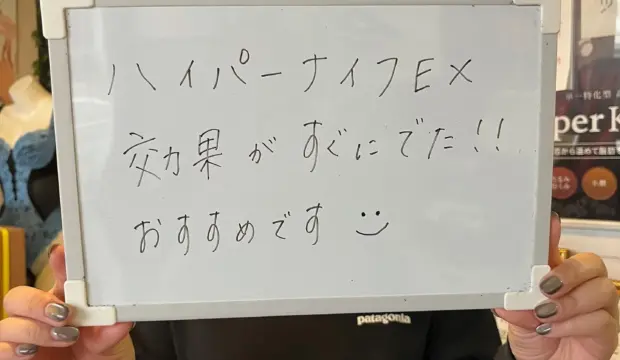 ハイパーナイフEX
効果がすぐにでた!!
おすすめです
patagonia